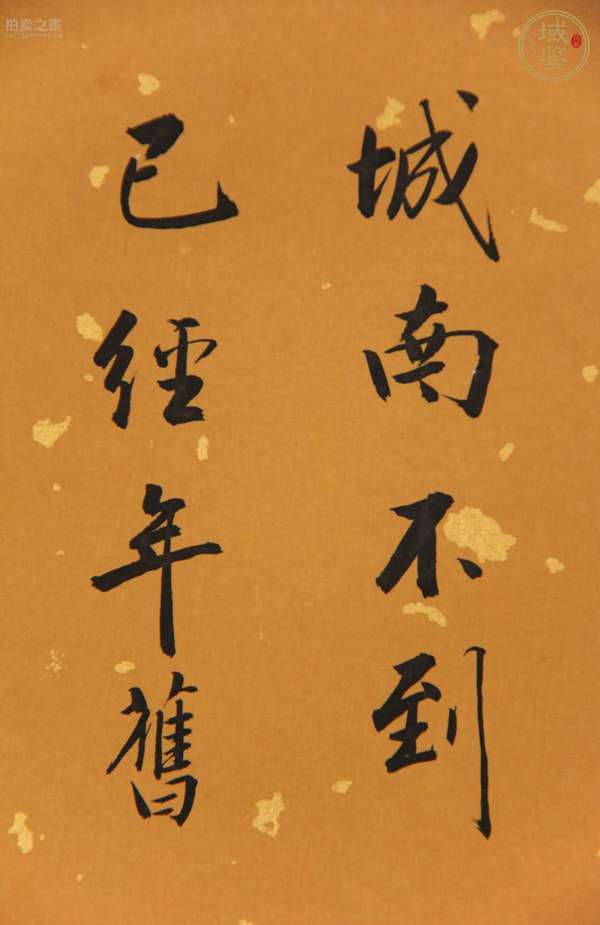 城南不到
已經年舊
拍卖之家
域鉴